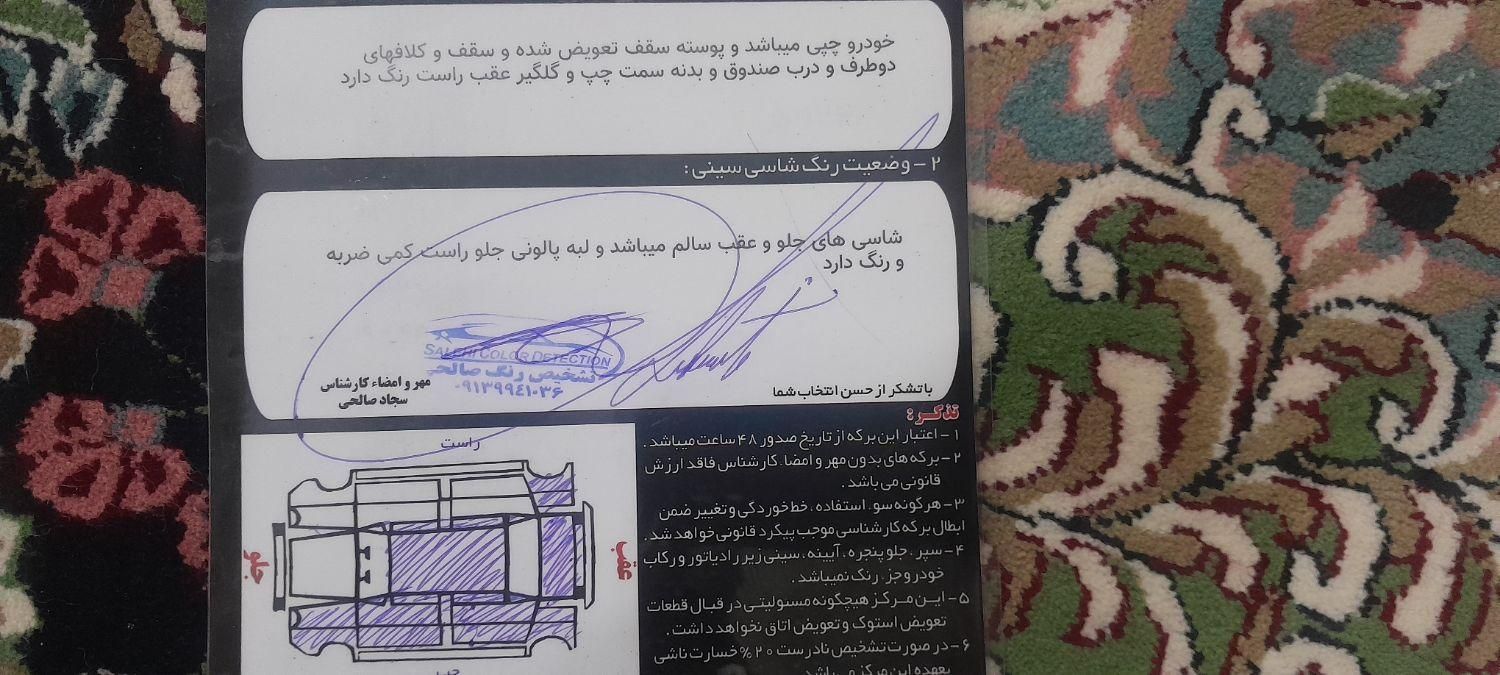 خودرو چپی میباشد و پوسته سقف تعویض شده و سقف و کلافهای
دوطرف و درب صندوق و بدنه سمت چپ و گلگیر عقب راست رنگ دارد
۲ - وضعیت رنگ شاسی سینی :
شاسی های جلو و عقب سالم میباشد و لبه پالونی جلو راست کمی ضربه
و رنگ دارد
SALEHI COLOR DETECTION
تشخیص رنگ صالحی
۰۹۱۳۹۹۴۱۰۳۶
مهر و امضاء کارشناس
سجاد صالحی
باتشکر از حسن انتخاب شما
تذکر :
۱ - اعتبار این برگه از تاریخ صدور ۴۸ ساعت میباشد .
۲- برگه های بدون مهر و امضا، کارشناس فاقد ارزش
قانونی می باشد .
۳- هرگونه سو، استفاده ، خط خوردگی و تغییر ضمن
ابطال برگه کارشناسی موجب پیگرد قانونی خواهد شد .
۴- سپر ، جلو پنجره ، آیینه ، سینی زیر رادیاتور و رکاب
خودرو جز، رنگ نمیباشد .
۵- این مرکز هیچگونه مسئولیتی در قبال قطعات
تعویض استوک و تعویض اتاق نخواهد داشت .
۶- در صورت تشخیص نادرست ۲۰% خسارت ناشی
بعهده این مرکز می باشد
راست
جلو
عقب